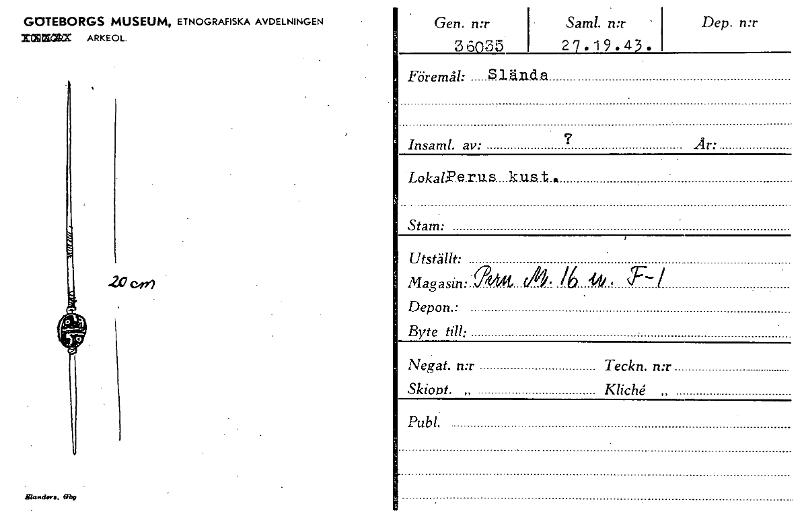 GÖTEBORGS MUSEUM, ETNOGRAFISKA AVDELNINGEN
ARKEOL.
20 cm
Elanders, Gbg
Gen. n:r Saml. n:r Dep. n:r
36035 27.19.43.
Föremål: Slända
Insaml. av: ? År:
Lokal: Perus kust.
Stam:
Utställt:
Magasin: Peru M. 16 F-1
Depon.:
Byte till:
Negat. n:r Teckn. n:r
Skiopt. „ Kliché „
Publ.